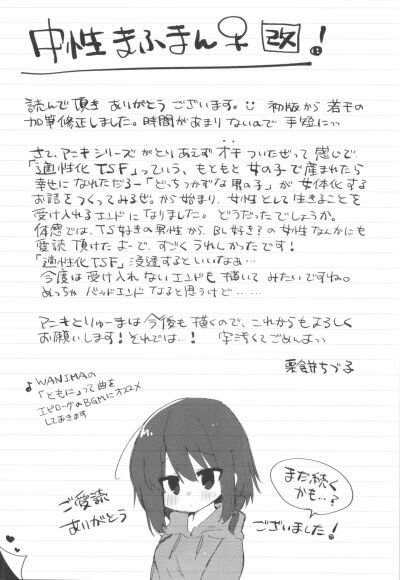 中性まふまん♀ 改!
読んで頂きありがとうございます。 初版から若干の
加筆修正しました。時間があまりないので手短に…
さて、アニキシリーズがとりあえずオチついたぜって感じで
「適性化TSF」っていう、もともと女の子で産まれたら
幸せになれただろー「どっちつかずな男の子」が女体化する
お話をつくってみるぜ。から始まり、女性として生きることを
受け入れるエンドになりました。どうだったでしょうか。
体感では、TS好きの男性から、BL好き?の女性なんかにも
愛読頂けたよーで、すごくうれしかったです!
「適性化TSF」浸透するといいなぁ…
今度は受け入れないエンドも描いてみたいですね。
めっちゃバッドエンドなると思うけど……
アニキとりゅーまは今後も描くので、これからもよろしく
お願いします!それでは…! 字汚くてごめんよ…
栗餅ちづ子
♪WANIMAの
「ともに」って曲を
エピローグのBGMにオススメ
しておきます
ご愛読
ありがとう
ございました!
また続く
かも…?